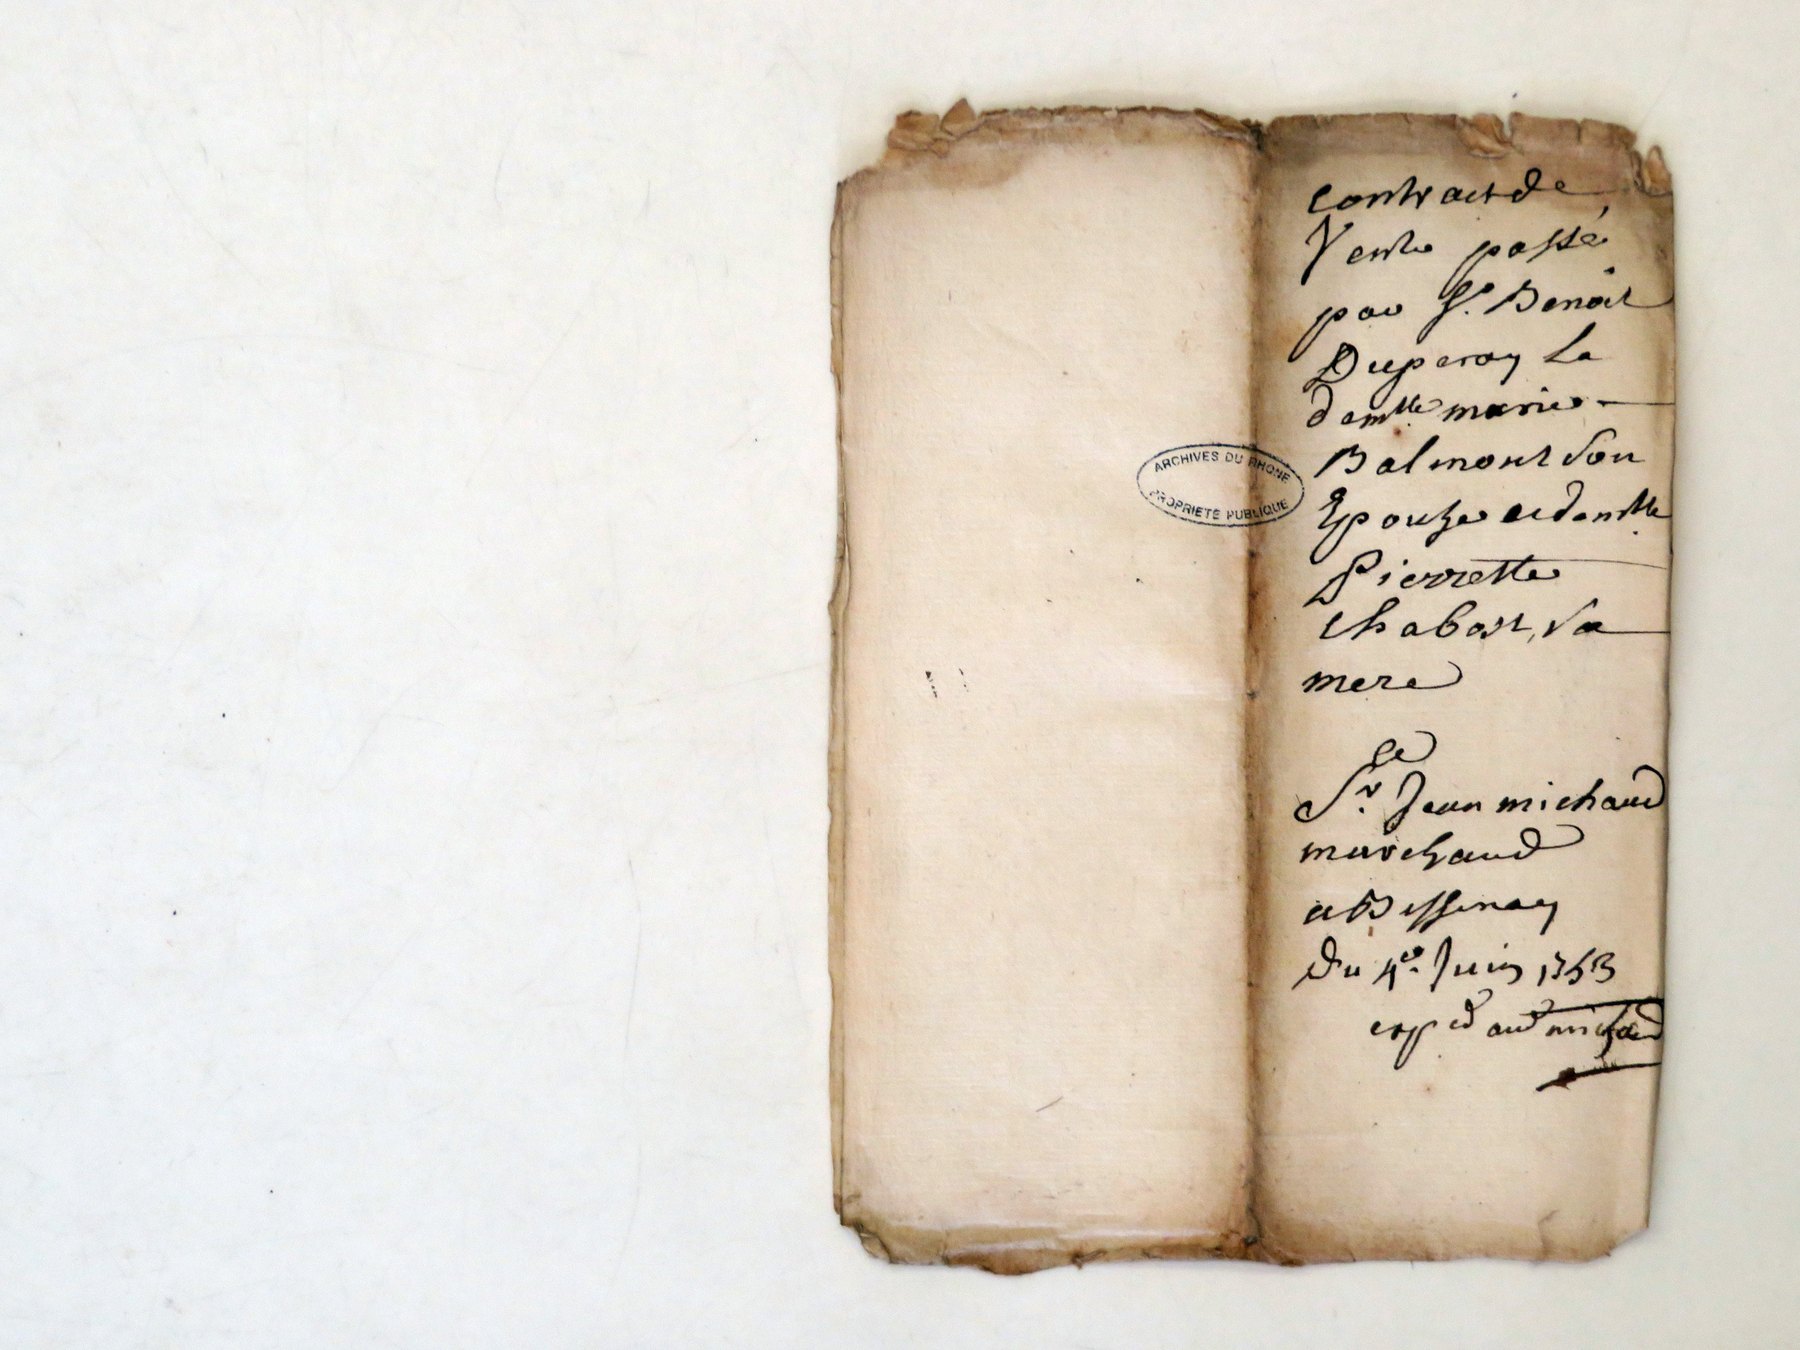 ARCHIVES DU RHONE
PROPRIETE PUBLIQUE
contract de
Vente passé
par Sr. Benoit
Duperay La
demlle. marie
Balmont son
Epouse et demlle.
Pierrette
Chabost, sa
mere
a
Sr. Jean michaud
marchand
a Bessenay
du 4e. Juin 1753
exped aud michaud